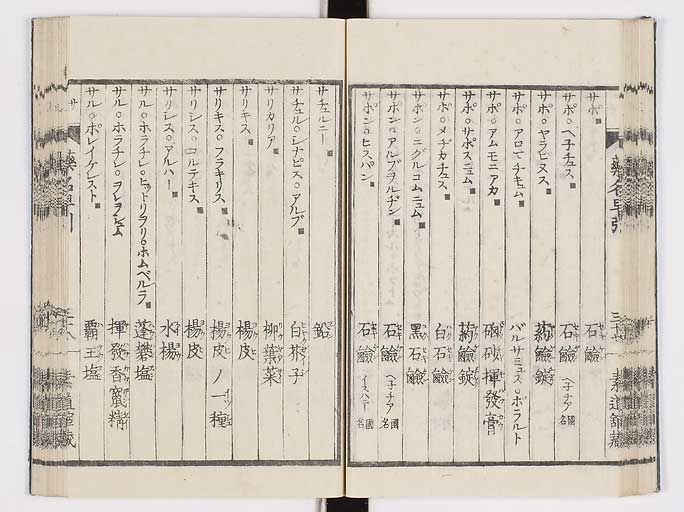 サポ 石鹼
サポ○ヘ子チュス 石鹼 ヘ子チア國名
サポ○ヤラピヌス 葯鹼錠
サポ○アロマチキュム バルサミュス○ポラルト
サポ○アムモニアカ 硇砂揮發膏
サポ○サポスニュム 葯鹼錠
サポ○メヂカチュス 白石鹼
サポン○ニグルコムニュム 黑石鹼
サポン○アルブヲルヂン 石鹼 ヘ子チア國名
サポン○ヒスパン 石鹼 イスハニー國名
藥名早引 素道舘藏
サチュルニー 鉛
サチュル○シナピス○アルブ 白芥子
サリカリア 柳葉菜
サリキス 楊皮
サリキス○フラキリス 楊皮ノ一種
サリシス○コルテキス 楊皮
サリシス○アルハー 水楊
サル○ホラチレ○ヒットリヲリ○ホムベルラ 蓬攀塩
サル○ホラチレ○ヲレヲシュム 揮發香竄精
サル○ポレイケレスト 覇王塩
サ 藥名早引 二十八 素道舘藏